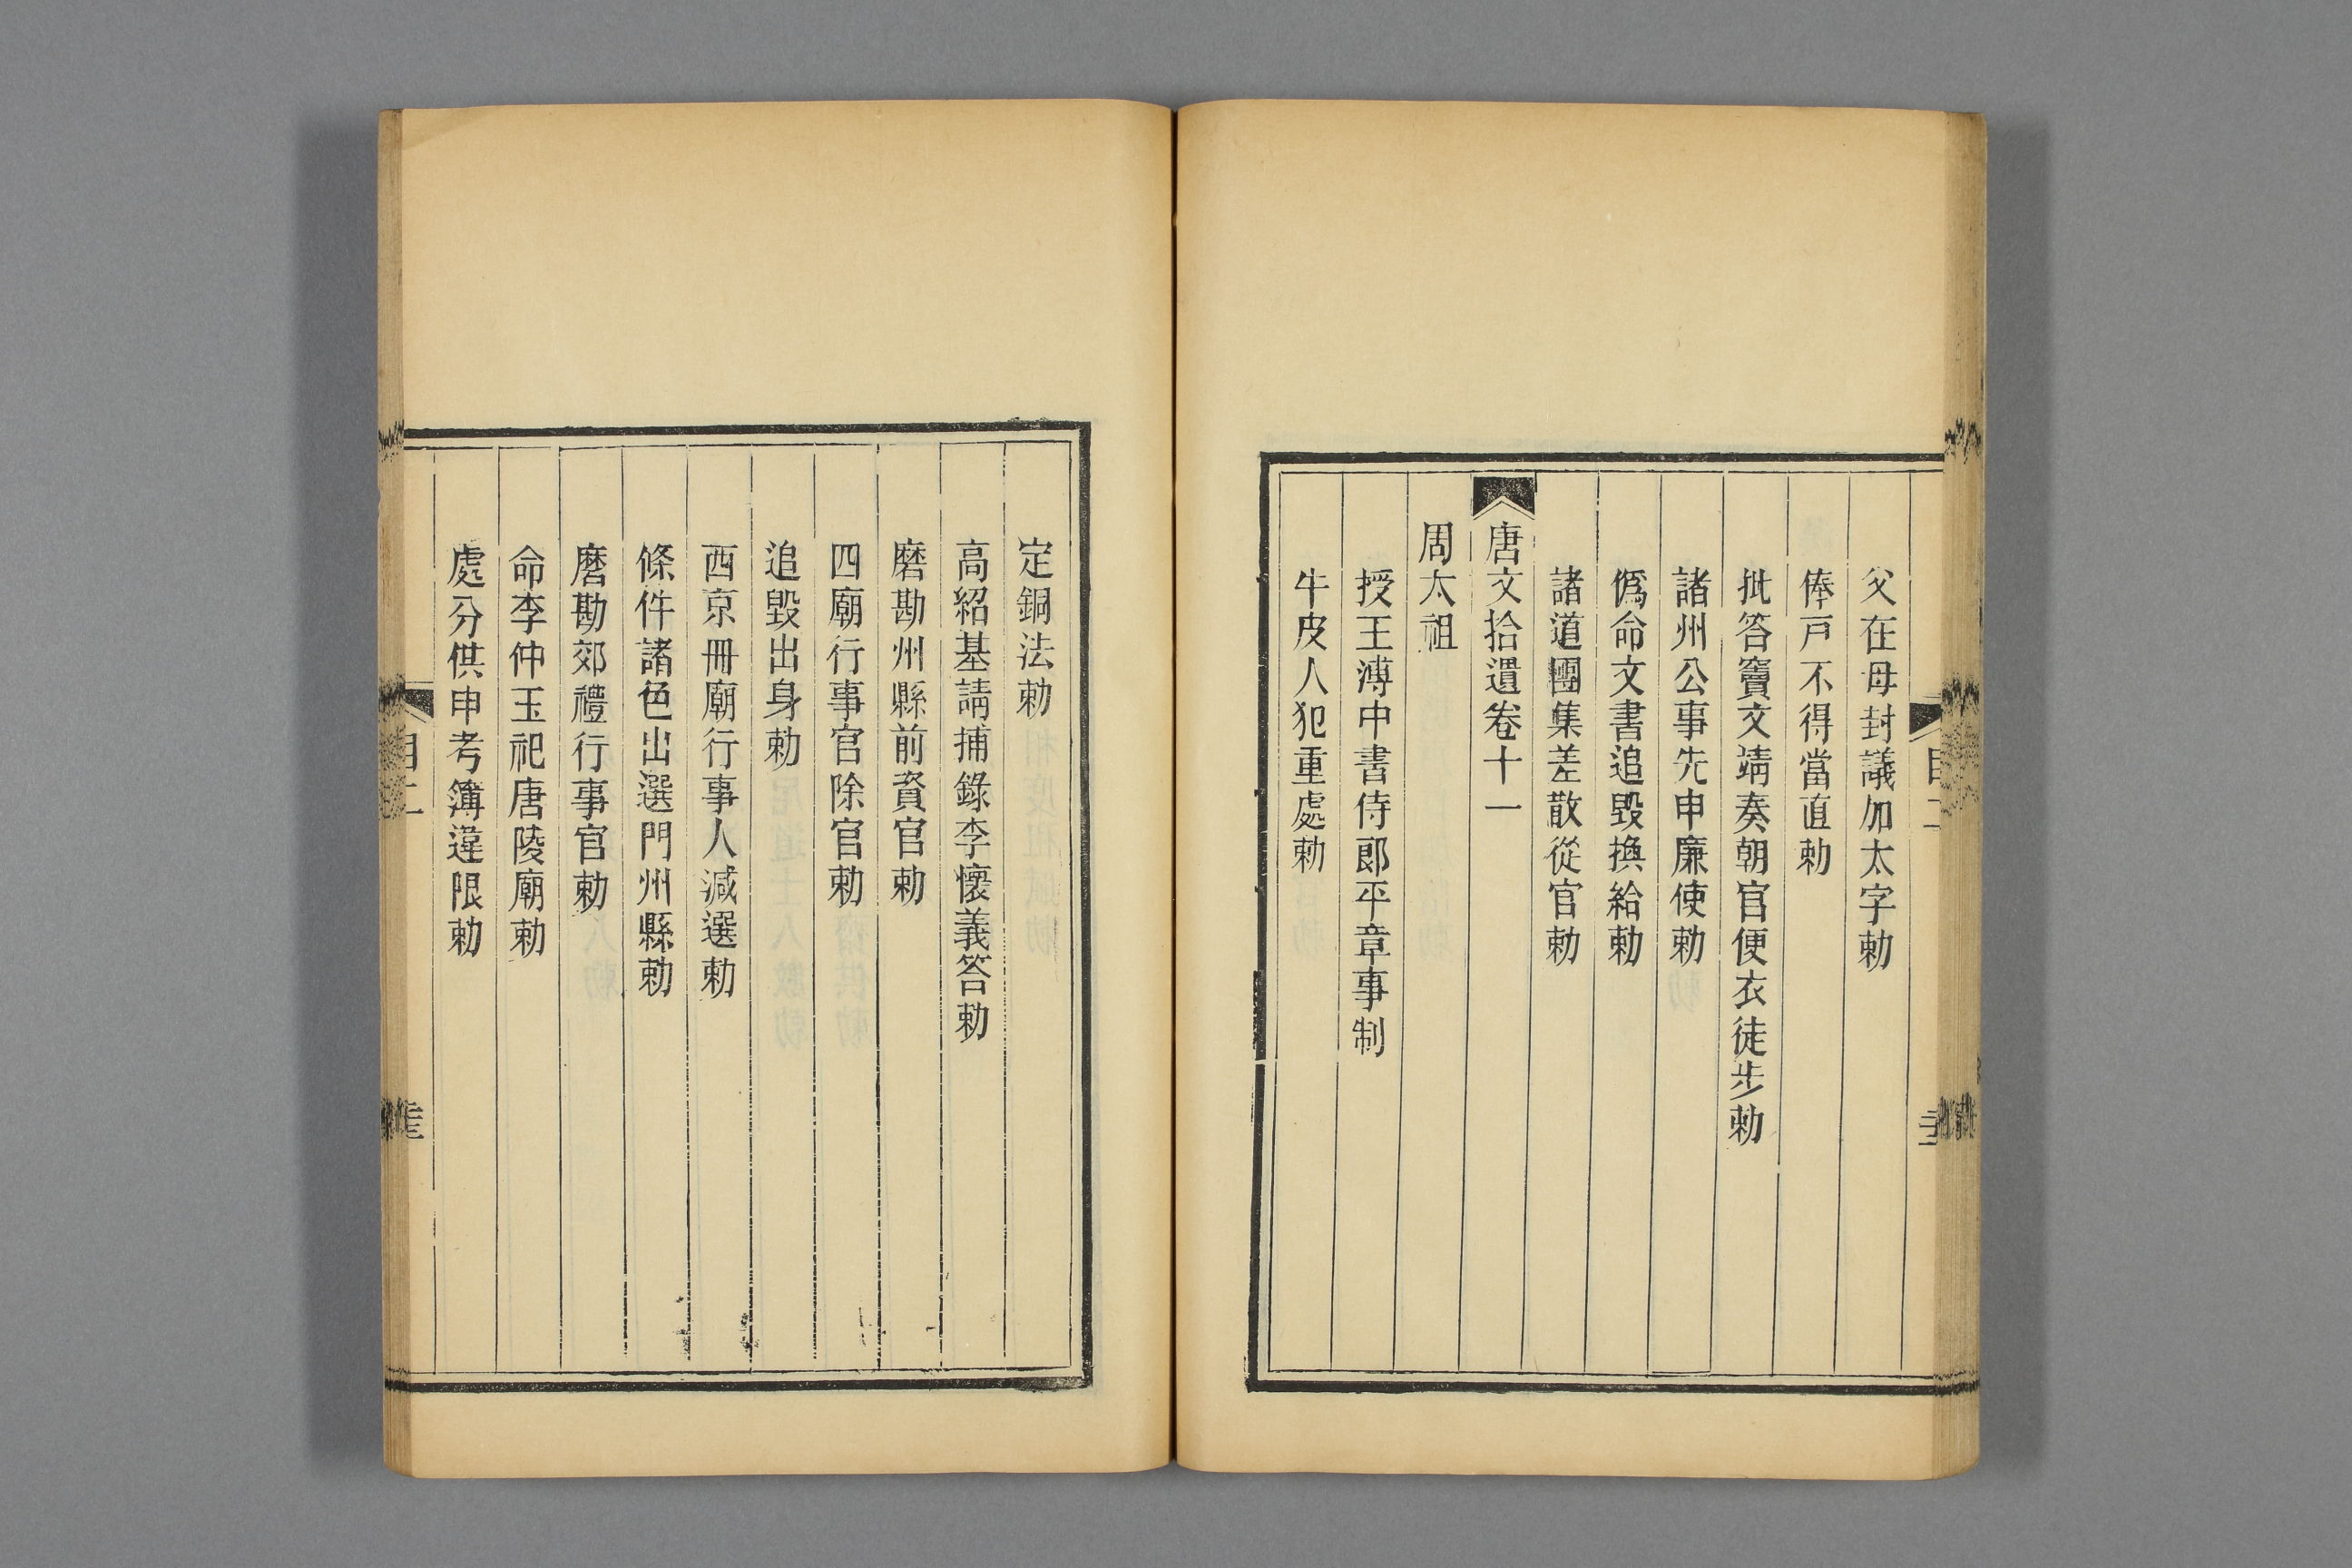 父在母封議加太字勅
俸戸不得當直勅
批答竇文靖奏朝官便衣徒步勅
諸州公事先申廉使勅
僞命文書追毀換給勅
諸道團集差散從官勅
唐文拾遺卷十一
周太祖
授王溥中書侍郎平章事制
牛皮人犯重處勅
定銅法勅
高紹基請捕錄李懷義答勅
磨勘州縣前資官勅
四廟行事官除官勅
追毀出身勅
西京冊廟行事人減選勅
條件諸色出選門州縣勅
磨勘郊禮行事官勅
命李仲玉祀唐陵廟勅
處分供申考簿違限勅
目二